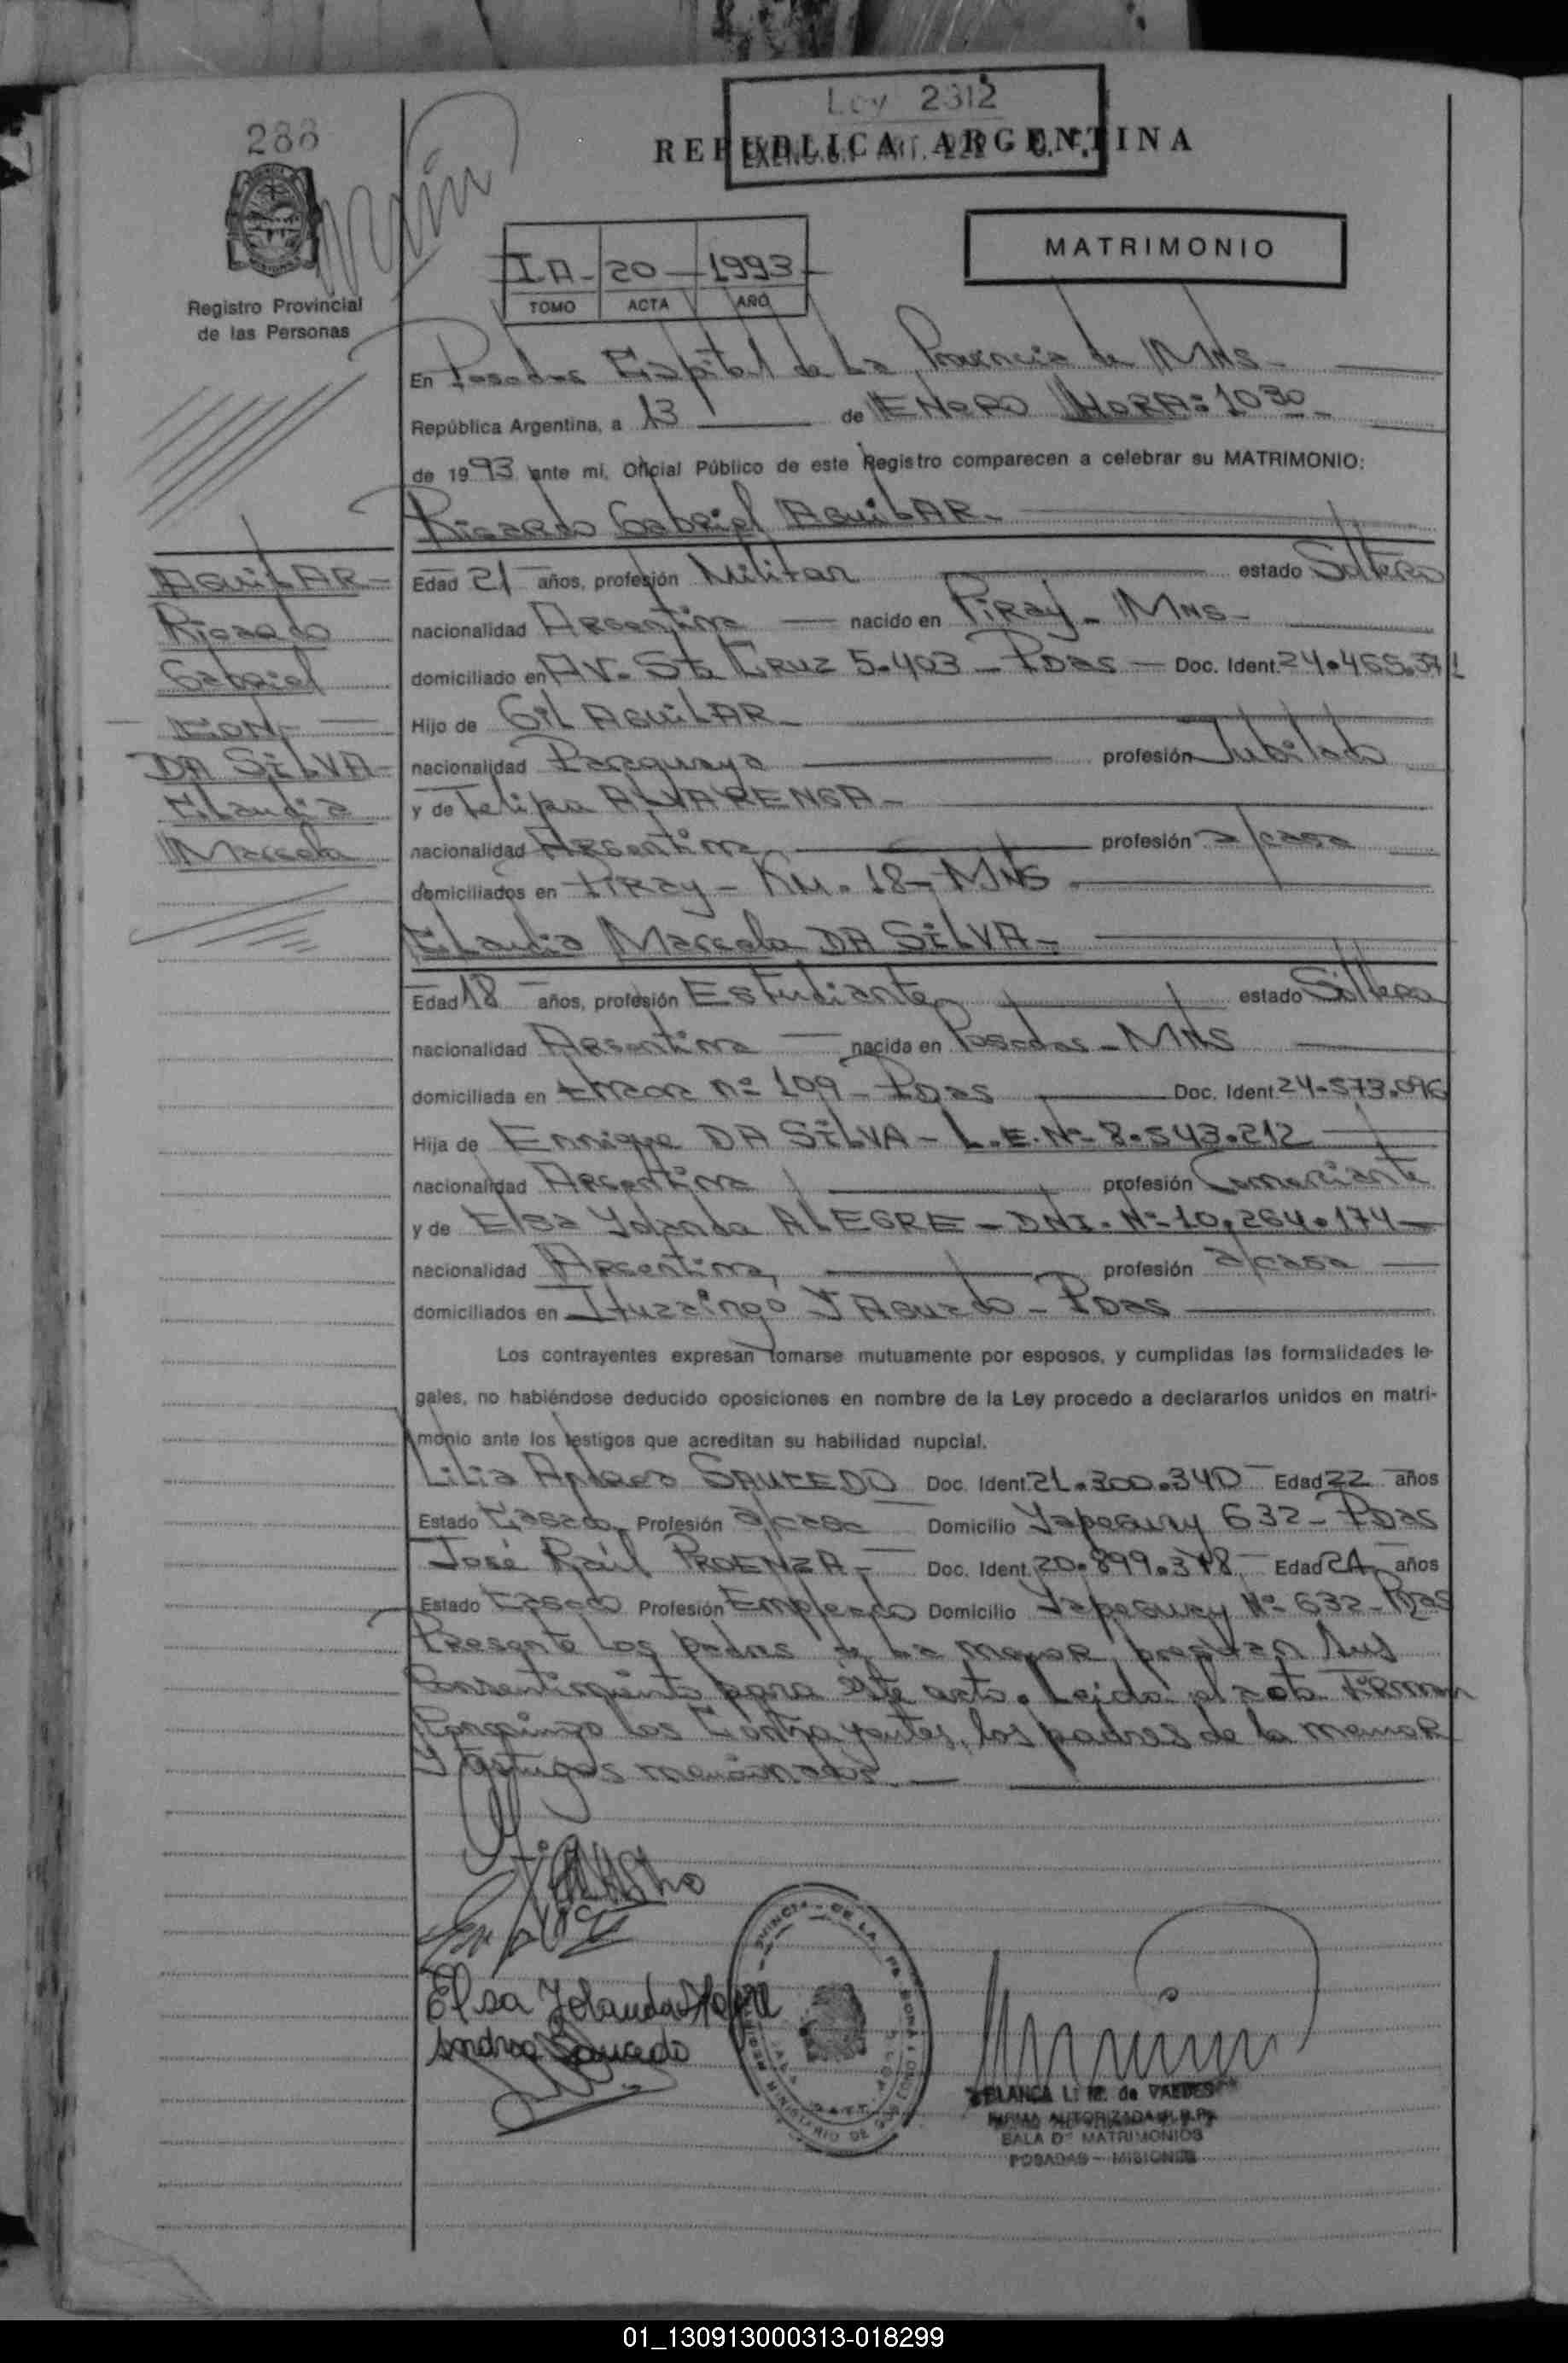 Ley 2312
286
REPUBLICA ARGENTINA
MATRIMONIO
I A - 20 - 1993
TOMO ACTA AÑO
Registro Provincial
de las Personas
En Posadas Capital de La Provincia de MNS -
República Argentina, a 13 de ENERO HORA: 1030 -
de 1993 ante mi, Oficial Público de este Registro comparecen a celebrar su MATRIMONIO:
Ricardo Gabriel AGUILAR -
AGUILAR -
Ricardo
Gabriel
- CON -
DA SILVA -
Claudia
Marcela
Edad 21 años, profesión Militar estado Soltero
nacionalidad Argentina nacido en Piray - MNS -
domiciliado en AV. Sta CRUZ 5.403 - PDAS - Doc. Ident. 24.465.371
Hijo de Gil AGUILAR -
nacionalidad Paraguaya profesión Jubilado
y de Felipa ALVARENGA -
nacionalidad Argentina profesión a/casa
domiciliados en PIRAY - KM. 18 - MNS -
Claudia Marcela DA SILVA -
Edad 18 años, profesión Estudiante estado Soltera
nacionalidad Argentina nacida en Posadas - MNS
domiciliada en nº 109 - PDAS Doc. Ident. 24.573.096
Hija de Enrique DA SILVA - L.E. Nº 8.543.212
nacionalidad Argentina profesión Comerciante
y de Elsa Yolanda ALEGRE - DNI. Nº 10.264.174 -
nacionalidad Argentina, profesión a/casa
domiciliados en Ituzaingó Y Aguado - PDAS
Los contrayentes expresan tomarse mutuamente por esposos, y cumplidas las formalidades le-
gales, no habiéndose deducido oposiciones en nombre de la Ley procedo a declararlos unidos en matri-
monio ante los testigos que acreditan su habilidad nupcial.
Lilia Andrea SAUCEDO Doc. Ident. 21.300.340 Edad 22 años
Estado Casada Profesión a/casa Domicilio Yapeyury 632 - PDAS
José Raúl PROENZA - Doc. Ident. 20.899.378 Edad 24 años
Estado Casado Profesión Empleado Domicilio Yapeyury Nº 632 - PDAS
Presente los padres de la menor prestan sus
Consentimiento para éste acto. Leída el acta Firman
Conmigo los Contrayentes, los padres de la menor
Y testigos mencionados. -
Elsa Yolanda Alegre
Andrea Saucedo
BLANCA L. M. de VALDES
FIRMA AUTORIZADA R.P.P.
SALA DE MATRIMONIOS
POSADAS - MISIONES
01_130913000313-018299